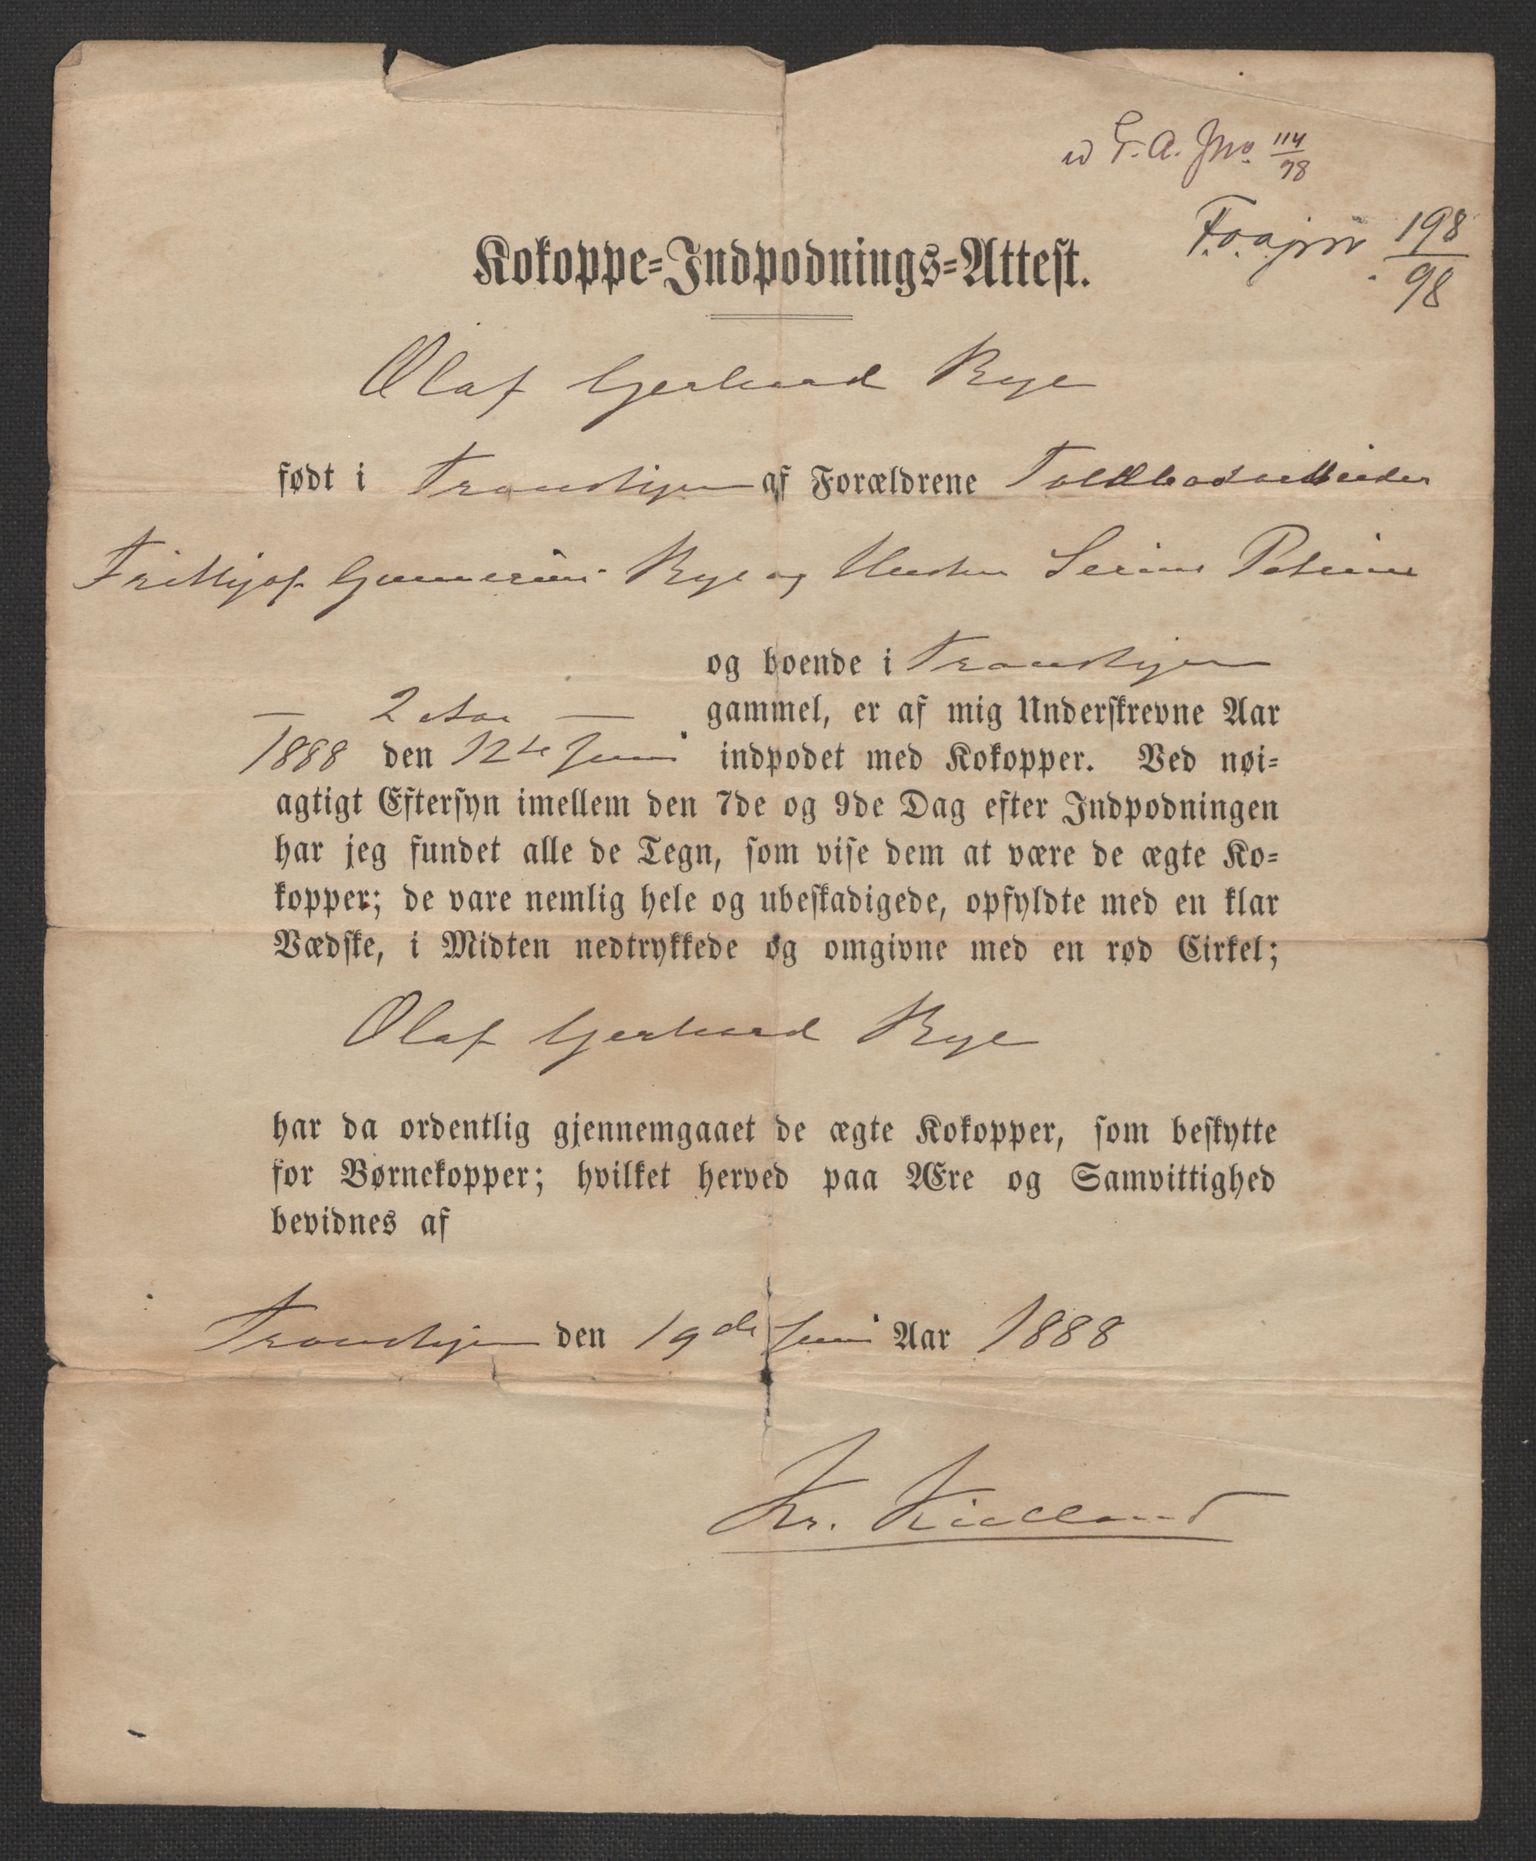 T. A. Jno. 114/98
198/98
Kokoppe-Indpodnings-Attest.
Olaf Gerhard Rye
født i Trondhjem af Forældrene Toldbodarbeider
Frithjof Rye og Hustru Serine Petrine
og boende i Trondhjem
— 2 Aar — gammel, er af mig Underskrevne Aar
1888 den 12te Juni indpodet med Kokopper. Ved nøi-
agtigt Eftersyn imellem den 7de og 9de Dag efter Indpodningen
har jeg fundet alle de Tegn, som vise dem at være de ægte Ko-
kopper; de vare nemlig hele og ubeskadigede, opfyldte med en klar
Vædske, i Midten nedtrykkede og omgivne med en rød Cirkel;
Olaf Gerhard Rye
har da ordentlig gjennemgaaet de ægte Kokopper, som beskytte
for Børnekopper; hvilket herved paa Ære og Samvittighed
bevidnes af
Trondhjem den 19de Juni Aar 1888
Kr. Kielland